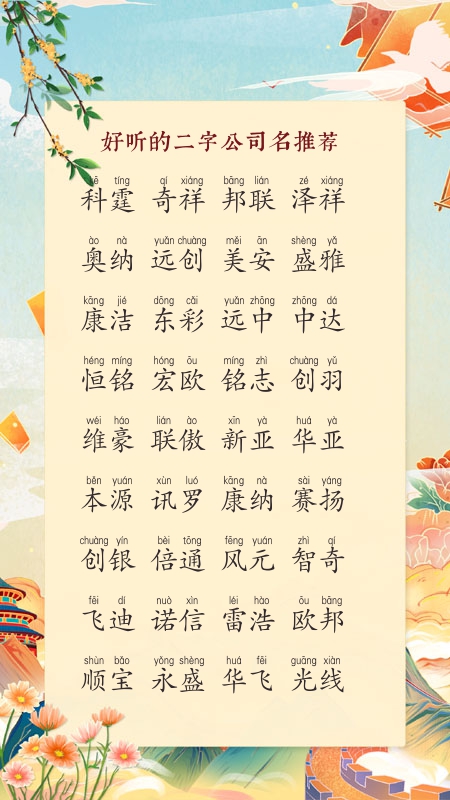 好听的二字公司名推荐
kē tíng qí xiáng bāng lián zé xiáng
科霆 奇祥 邦联 泽祥
ào nà yuǎn chuàng měi ān shèng yǎ
奥纳 远创 美安 盛雅
kāng jié dōng cǎi yuǎn zhōng zhōng dá
康洁 东彩 远中 中达
héng míng hóng ōu míng zhì chuàng yǔ
恒铭 宏欧 铭志 创羽
wéi háo lián ào xīn yà huá yà
维豪 联傲 新亚 华亚
běn yuán xùn luó kāng nà sài yáng
本源 讯罗 康纳 赛扬
chuàng yín bèi tōng fēng yuán zhì qí
创银 倍通 风元 智奇
fēi dí nuò xìn léi hào ōu bāng
飞迪 诺信 雷浩 欧邦
shùn bǎo yǒng shèng huá fēi guāng xiàn
顺宝 永盛 华飞 光线